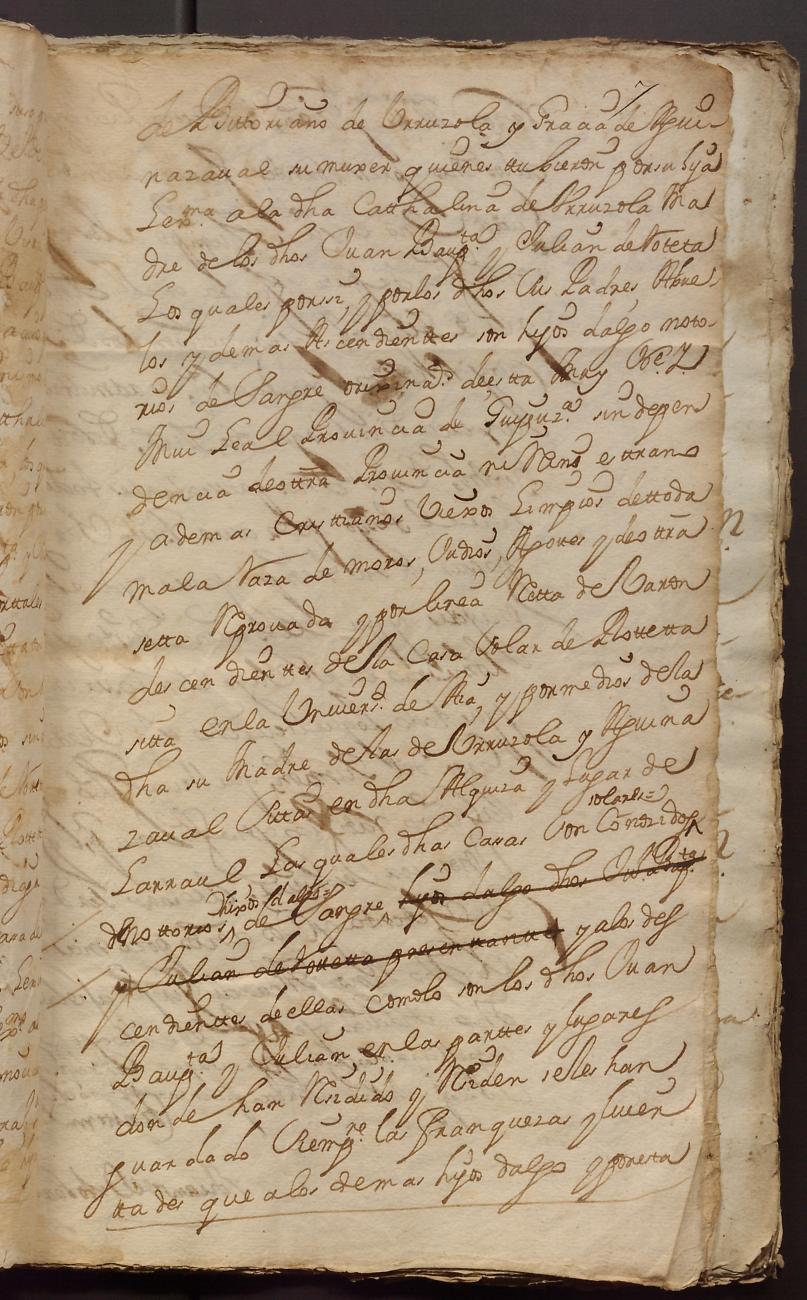 7
de Bittoriano de Urruzola y Graçia de Agui-
nazaual su muxer quienes ttubieron por su hija
Lex.ma a la dha Catthalina de Urruzola Ma
dre de los dhos Juan Baup.ta y Julian de Rotetta
Los quales por si, y por los dhos sus Padres, Abue
los y demas Ascendienttes son hijos dalgo noto-
rios de Sangre originar.s de estta Muy N.e Y
Mui Leal Prouincia de Guipuz.a sin depen
dencia de ottra Prouincia ni Reino esttrano
y ademas Cristtianos Viexos Limpios de ttoda
mala Raza de moros, Judios, Agotes y de ottra
setta Reprouada y por linea Rectta de Varon
descendienttes de la Casa Solar de Rottetta
sitta en la Uniuers.d de Aia, y por medio de la
dha su Madre de las de Urruzola y Aguina
zaual Sittas en dha Alquiza y Lugar de
solares=
Larraul Las quales dhas Casas son Conozidas
hixos dalgo=
de Nottorios de Sangre hijos dalgo dhos Juº Bap.ta
y Julian de Rottetta presenttantes y a los des
cendienttes de ellas como lo son los dhos Juan
Baup.ta y Julian en las parttes y lugares
donde han Residido y Residen se les han
guardado Siemp.re las franquezas y liuer
ttades que a los demas hijos dalgo y por esta